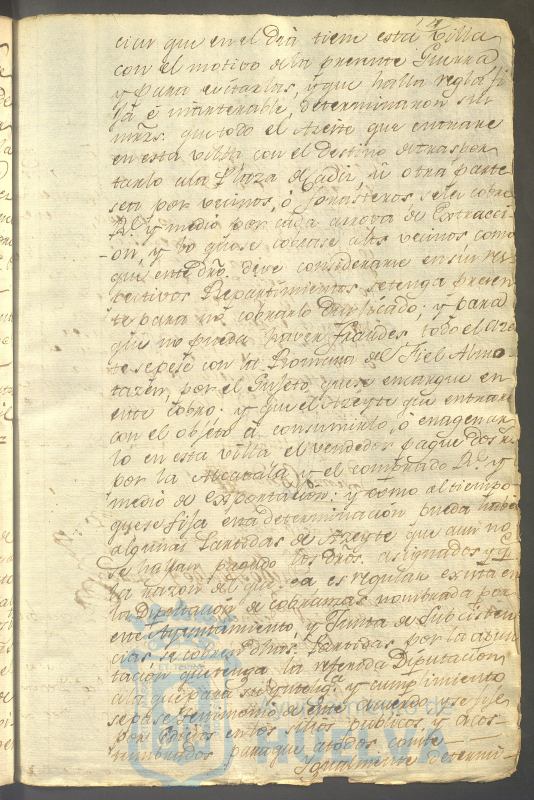 ciar que en el dia tiene esta Villa
con el motivo de la presente Guerra
y para evitarlas, y que halla regla fi
ja é inalterable, determinaron sus
mrzs. que todo el Azeite que entrare
en esta villa con el destino de traspor
tarlo ala Plaza de Cadiz, ú otra parte
sea por vecinos, ó forasteros, se le cobre
R.^l y medio por cada arrova de Extracci
on, y lo que se cobrase alos vecinos como
que este dro. deve considerarse en sus res
pectivos Repartimientos se tenga presen
te para no cobrarlo duplicado: y para
que no pueda haver fraudes, todo el aze
te se pese con la Romana del Fiel Almo
tazen por el Sujeto que se encargue en
este cobro: y que el Azeyte que entrare
con el objeto de consumirlo, ó enagenar
lo en esta villa el vendedor pague dos r.^s
por la Alcavala y el comprador R.^l y
medio de exportacion: y como al tiempo
que se fija esta determinacion pueda haber
algunas Partidas de Azeyte que aun no
se hallan pagado los dros. asignados y q.^e
la razon del que sea es regular exista en
la Diputacion de cobranzas nombrada por
este Ayuntamiento, y Junta de Subcisten
cias, se cobren dhas. Partidas por la apun
tacion que tenga la referida Diputacion
ala que para su inteligª. y cumplimiento
se pase testimonio de este acuerdo y se fije
por Edictos en los sitios publicos y acos
tumbrados para que atodos conste
Igualmente determi-
AYUNTAMIENTO DE
HUELVA